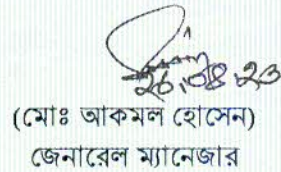 ২৬.০৪.২৩
(মোঃ আকমল হোসেন)
জেনারেল ম্যানেজার